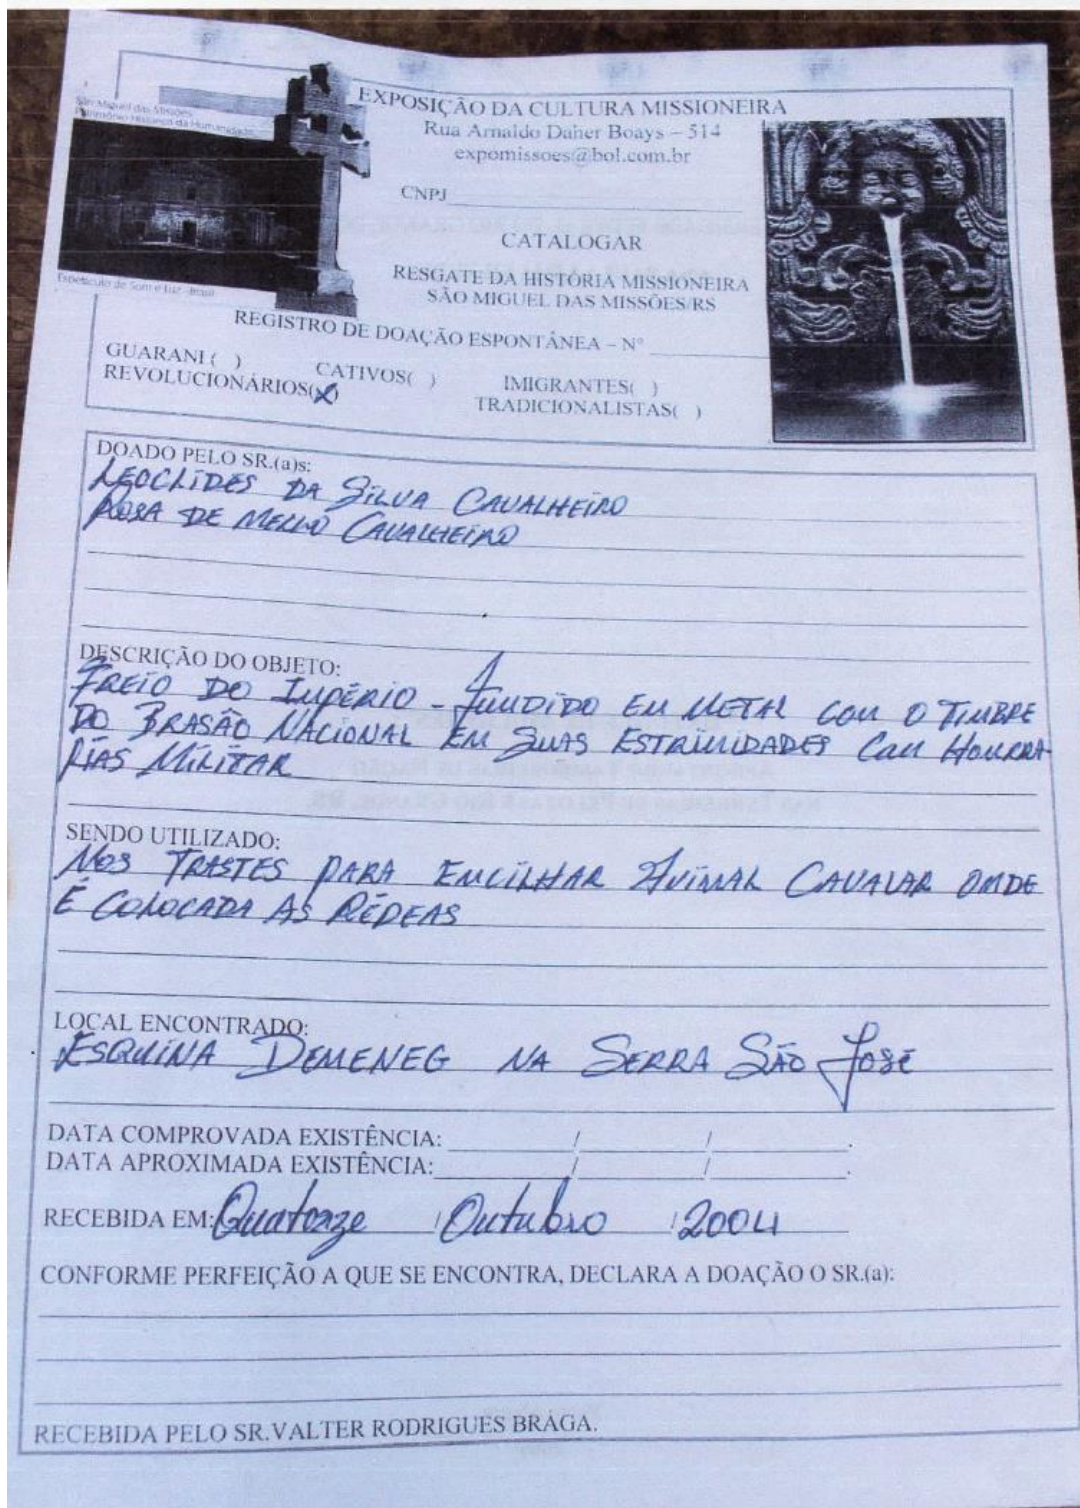 São Miguel das Missões
Patrimônio Histórico da Humanidade
Espetáculo de Som e Luz -Brasil
EXPOSIÇÃO DA CULTURA MISSIONEIRA
Rua Arnaldo Daher Boays – 514
expomissoes@bol.com.br
CNPJ
CATALOGAR
RESGATE DA HISTÓRIA MISSIONEIRA
SÃO MIGUEL DAS MISSÕES/RS
REGISTRO DE DOAÇÃO ESPONTÂNEA – Nº
GUARANI ( ) CATIVOS( ) IMIGRANTES( )
REVOLUCIONÁRIOS(X) TRADICIONALISTAS( )
DOADO PELO SR.(a)s:
LEOCLIDES DA SILVA CAVALHEIRO
ROSA DE MELLO CAVALHEIRO
DESCRIÇÃO DO OBJETO:
FREIO DO IMPÉRIO - FUNDIDO EM METAL COM O TIMBRE
DO BRASÃO NACIONAL EM SUAS ESTRIMIDADES COM HOURRA-
RIAS MILITAR
SENDO UTILIZADO:
NOS TRASTES PARA ENCILHAR ANIMAL CAVALAR ONDE
É COLOCADA AS RÉDEAS
LOCAL ENCONTRADO:
ESQUINA DEMENEG NA SERRA SÃO JOSÉ
DATA COMPROVADA EXISTÊNCIA: / / .
DATA APROXIMADA EXISTÊNCIA: / / .
RECEBIDA EM: Quatorze / Outubro / 2004
CONFORME PERFEIÇÃO A QUE SE ENCONTRA, DECLARA A DOAÇÃO O SR.(a):
RECEBIDA PELO SR.VALTER RODRIGUES BRAGA.